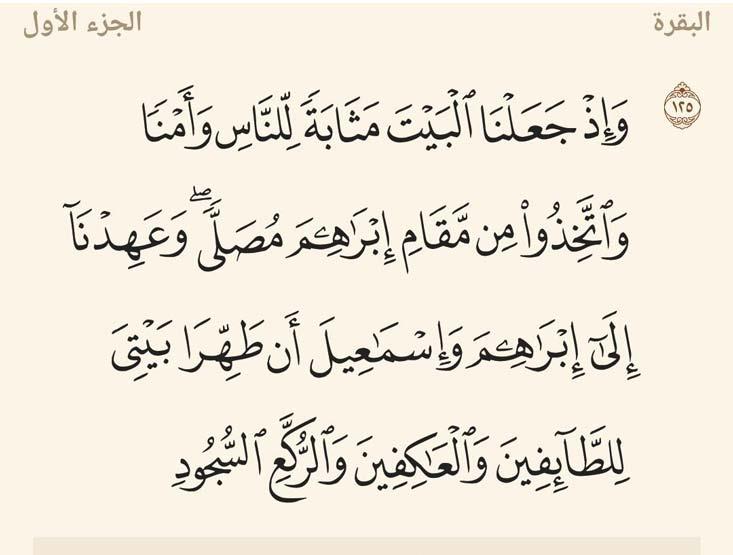 البقرة الجزء الأول
١٢٥
وَإِذْ جَعَلْنَا ٱلْبَيْتَ مَثَابَةً لِّلنَّاسِ وَأَمْنًا
وَٱتَّخِذُوا۟ مِن مَّقَامِ إِبْرَٰهِـۧمَ مُصَلًّى ۖ وَعَهِدْنَآ
إِلَىٰٓ إِبْرَٰهِـۧمَ وَإِسْمَـٰعِيلَ أَن طَهِّرَا بَيْتِىَ
لِلطَّآئِفِينَ وَٱلْعَـٰكِفِينَ وَٱلرُّكَّعِ ٱلسُّجُودِ